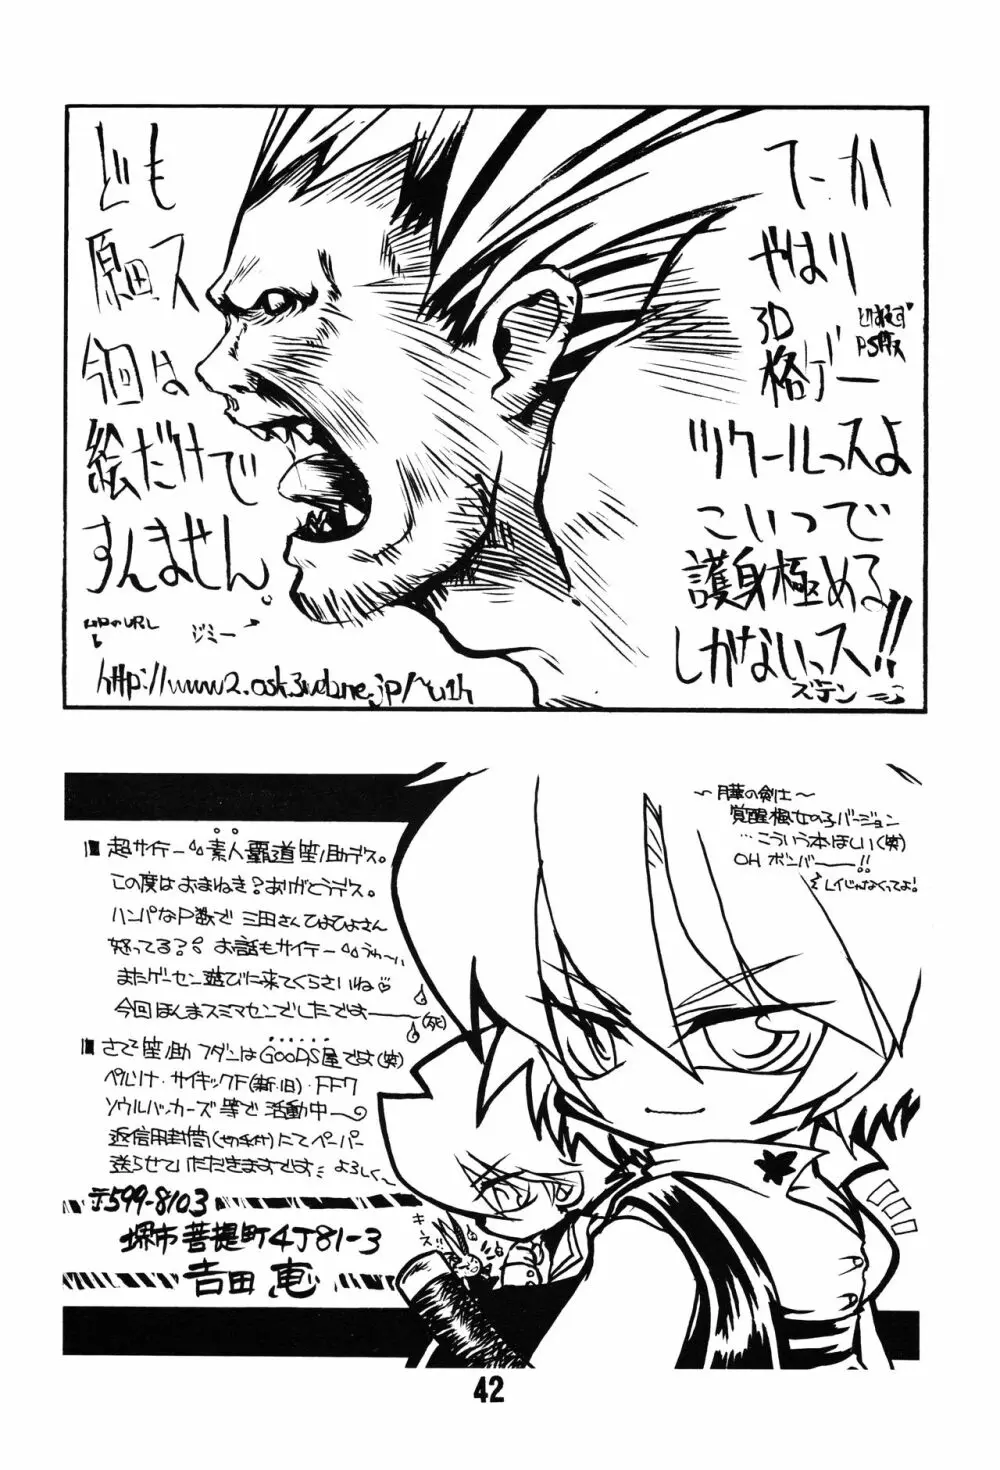 ども
原田ス
今回は
絵だけで
すんません。
HPのURL
ジミー
http://www2.osk.3web.ne.jp/~u1h
てーか
やはり
3D
格ゲー
とりあえず
PS版ス
ツクールっスよ
こいつで
護身極める
しかないっス!!
ズデン
～月華の剣士～
覚醒楓女の子バージョン
…こういう本ほしい(笑)
OH ボンバー――!!
レイじゃなくってよ!
超サイテー 素人覇道笙ノ助デス。
この度はおまねき?ありがとうデス。
ハンパなP数で 三田さんひよひよさん
怒ってる?? お話もサイテー うわ～
またゲーセン遊びに来てくらさいね
今回ほんまスミマセンでしたです――(死)
さて笙ノ助 フダンはGOODS屋です(笑)
ペルソナ・サイキックF(新・旧)・FF7
ソウルハッカーズ等で 活動中～
返信用封筒(切手付)にてペーパー
送らせていただきますです よろしく～
〒599-8103
堺市菩提町4丁81-3
吉田 恵
キーズ
42